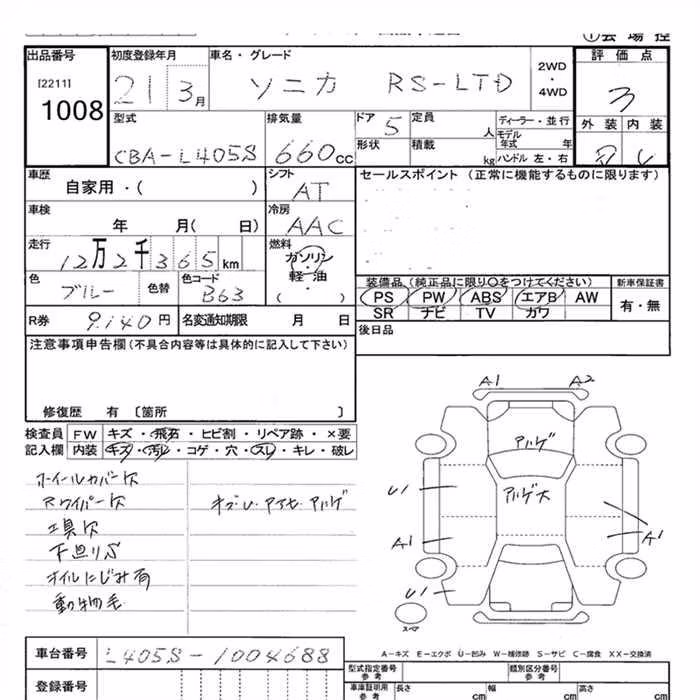 ①会 場 控
出品番号
[2211]
1008
初度登録年月
21 3月
車名・グレード
ソニカ RS-LTD
2WD
・
4WD
評 価 点
3
型式
CBA-L405S
排気量
660cc
ドア
5
形状
定員
人
積載
kg
ディーラー・並行
モデル
年式 年
ハンドル 左・右
外 装 内 装
車歴
自家用・( )
シフト
AT
セールスポイント (正常に機能するものに限ります)
車検
年 月( 日)
冷房
AAC
走行
12万2千365km
燃料
ガソリン
・
軽 油
・
( )
色
ブルー
色替
色コード
B63
装備品 (純正品に限り○をつけてください)
PS PW ABS エアB AW
SR ナビ TV カワ
新車保証書
有・無
R券 9,140円
名変通知期限 月 日
後日品
注意事項申告欄(不具合内容等は具体的に記入して下さい)
修復歴 有 〔箇所 〕
検査員 FW キズ・飛石・ヒビ割・リペア跡・×要
記入欄 内装 キズ・汚レ・コゲ・穴・スレ・キレ・破レ
ホイールカバー欠
スワイパー欠
工具欠
下廻りS
オイルにじみ有
動物毛
キズ・U・アセ・アルゲ
A1 A2
アルゲ
U1
アルゲ大
A1 A1
U1
スペア
A-キズ E-エクボ U-凹み W-補修跡 S-サビ C-腐食 XX-交換済
車台番号
L405S-1004688
登録番号
型式指定番号
参 考
類別区分番号
参 考
車庫証明用
参 考
長さ cm
幅 cm
高さ cm